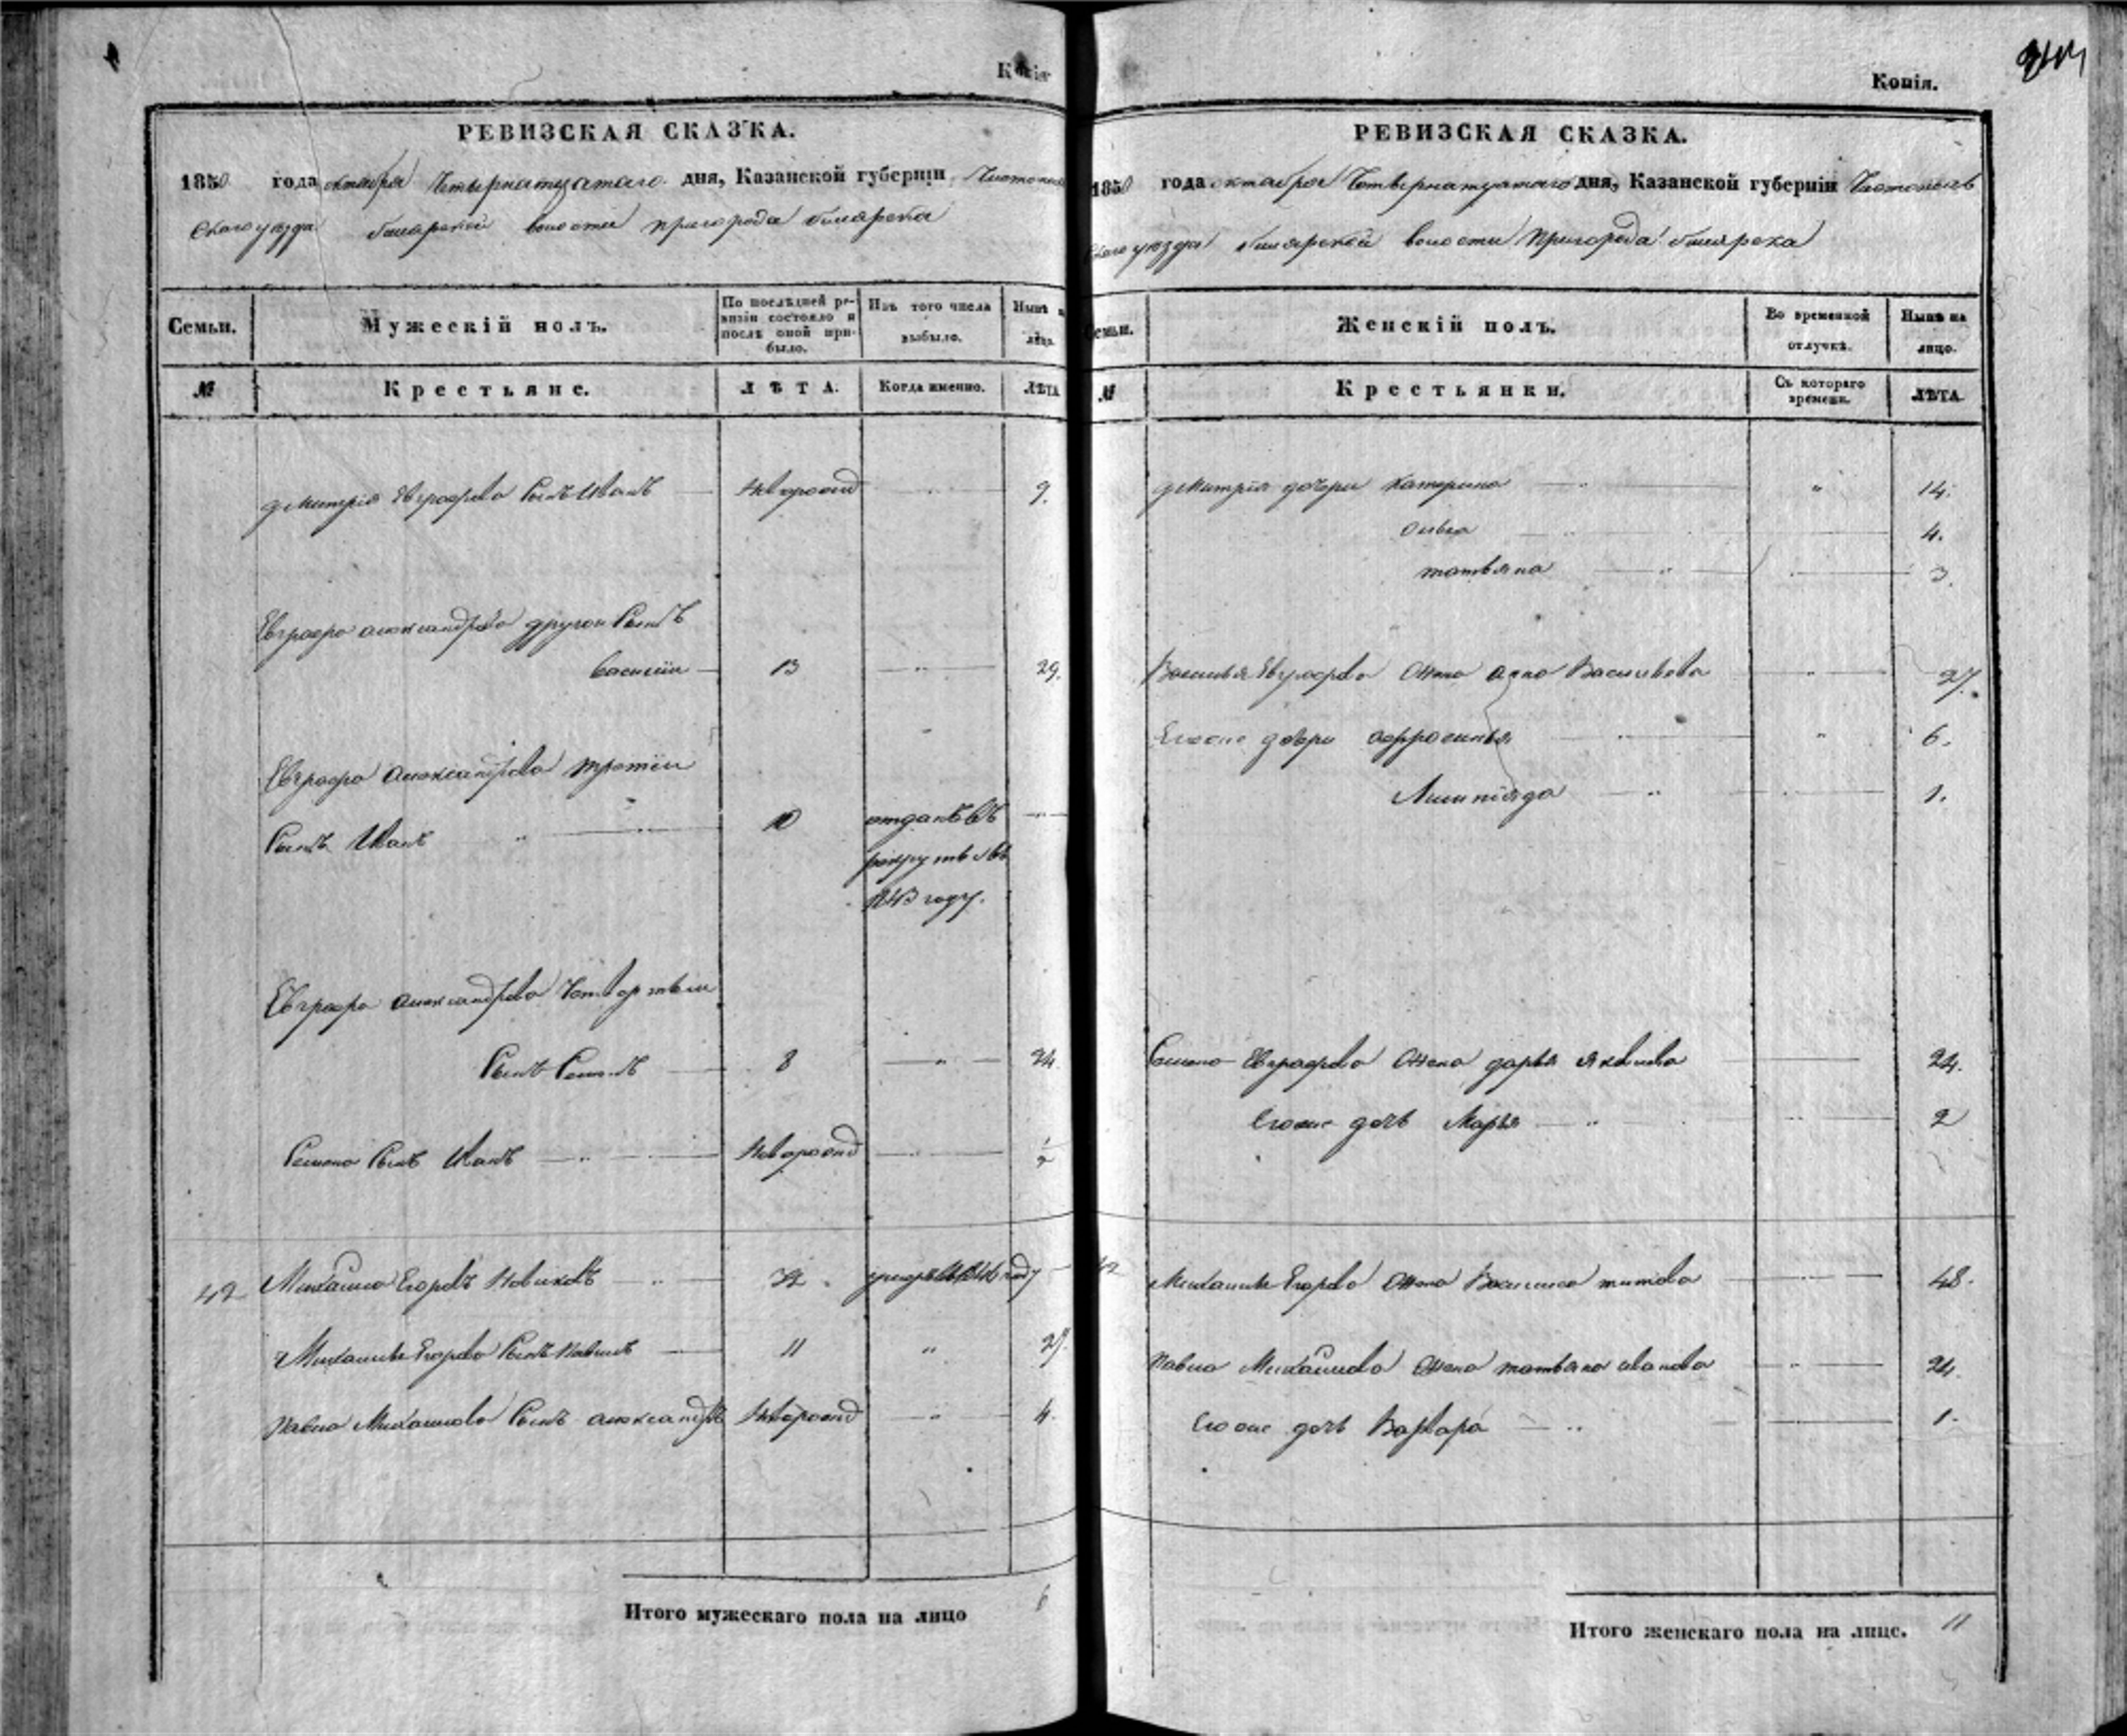 Копія
РЕВИЗСКАЯ СКАЗКА.
1850 года октября Четырнатцатаго дня, Казанской губерніи Чистополь
скаго уезда билярской волости пригорода билярска
Семьи.
Мужескій полъ.
По послѣдней ре-
визіи состояло и
послѣ оной при-
было.
Изъ того числа
выбыло.
Нынѣ на
лицо.
№
Крестьяне.
ЛѢТА.
Когда именно.
ЛѢТА
дмитрія Евграфова Сынъ Иванъ новорожд 9.
Евграфа александрова другои Сынъ
василеи 13 29.
Евграфа александрова третеи
Сынъ Иванъ 10 отданъ въ
рекруты въ
1843 году.
Евграфа александрова четвертыи
Сынъ Семенъ 8 24
Семена Сынъ Иванъ новорожд 1/2
42 Михаила Егоровъ Новиковъ 32 умеръ в 1846 году
Михаила Егорова Сынъ павилъ 11 27.
павла Михаилова Сынъ александръ новорожд 4.
Итого мужескаго пола на лицо 6
Копія.
РЕВИЗСКАЯ СКАЗКА.
1850 года октября Четвернатцатаго дня, Казанской губерніи Чистополь
скаго уезда билярской волости пригорода билярска
Семьи.
Женскій полъ.
Во временной
отлучкѣ.
Нынѣ на
лицо.
№
Крестьянки.
Съ котораго
времени.
ЛѢТА.
дмитрія дочери катерина 14.
татьяна 3.
Василья Евграфова жена анна Васильева 27.
Егоже дочери афросинья 6.
Лимпіяда 1.
Семена Евграфова жена дарья яковлева 24.
Егоже дочь Марья 2
42 Михаила Егорова жена Василиса титова 48.
павла Михаилова жена татьяна иванова 24.
Егоже дочь Варвара 1.
Итого женскаго пола на лицо. 11